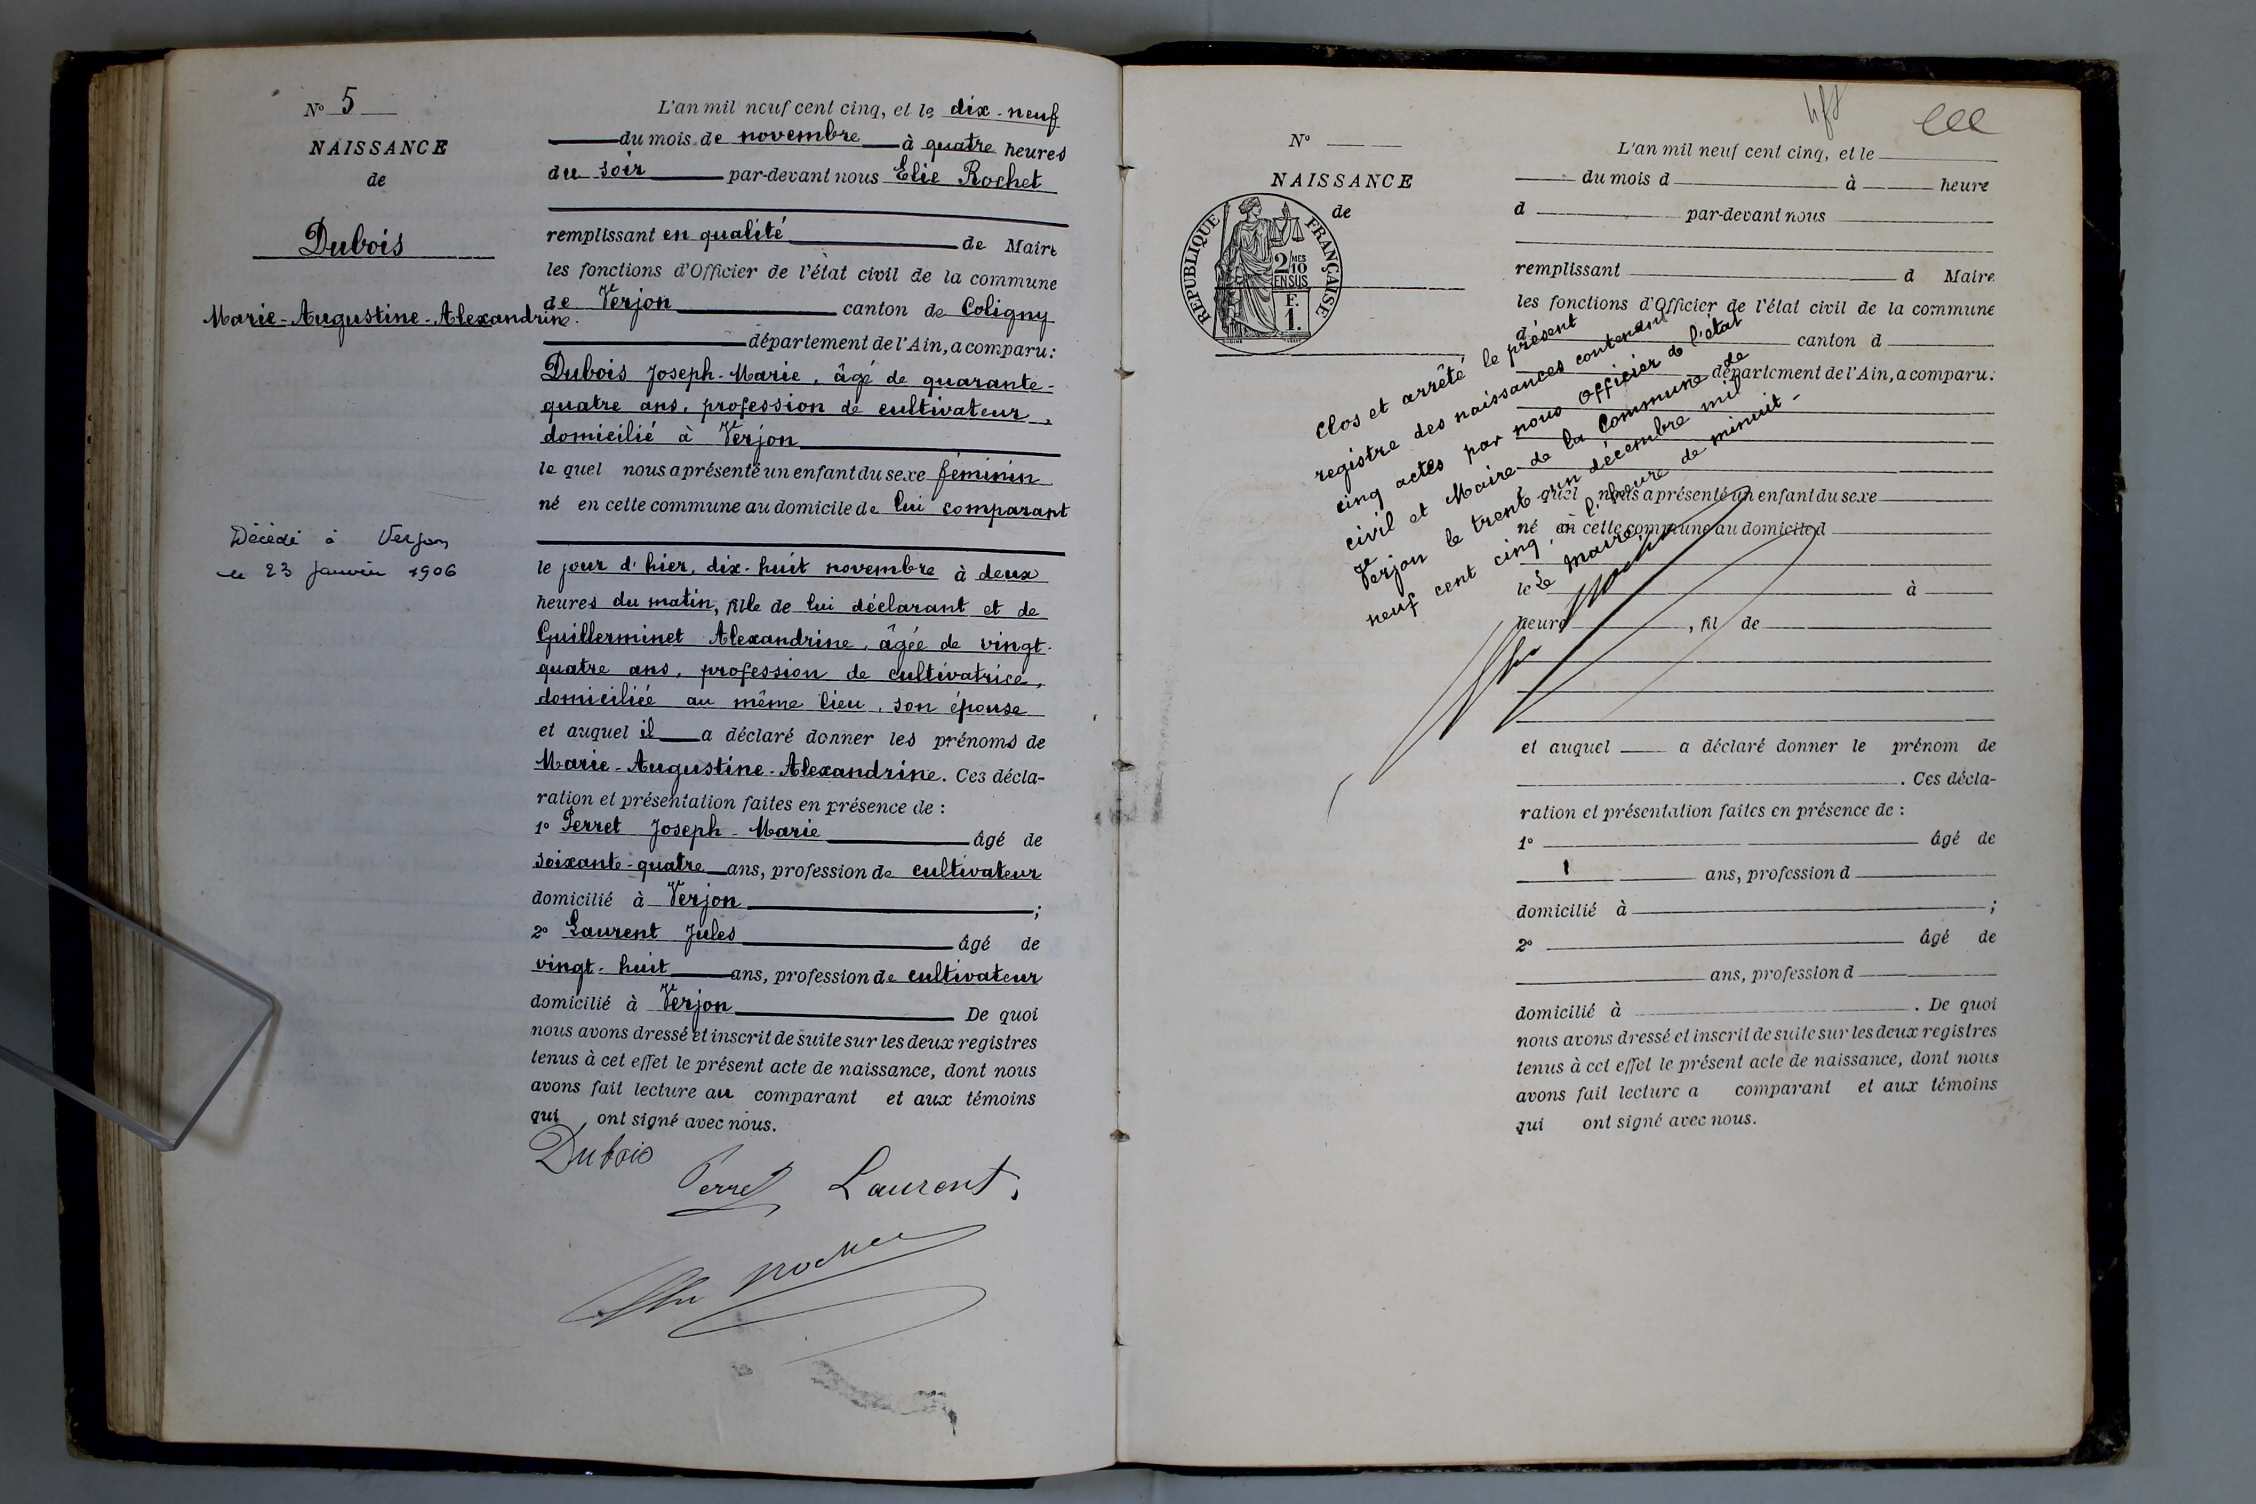 N° 5
NAISSANCE
de
Dubois
Marie-Augustine-Alexandrine.
Décédé à Verjon
le 23 Janvier 1906
L'an mil neuf cent cinq, et le dix-neuf
du mois de novembre à quatre heures
du soir par-devant nous Elie Rochet
remplissant en qualité de Maire
les fonctions d'Officier de l'état civil de la commune
de Verjon canton de Coligny
département de l'Ain, a comparu:
Dubois Joseph-Marie, âgé de quarante-
quatre ans, profession de cultivateur,
domicilié à Verjon
lequel nous a présenté un enfant du sexe féminin
né en cette commune au domicile de lui comparant
le jour d'hier, dix-huit novembre à deux
heures du matin, fille de lui déclarant et de
Guillerminet Alexandrine, âgée de vingt-
quatre ans, profession de cultivatrice,
domiciliée au même lieu, son épouse
et auquel il a déclaré donner les prénoms de
Marie-Augustine-Alexandrine. Ces décla-
ration et présentation faites en présence de :
1° Perret Joseph-Marie âgé de
soixante-quatre ans, profession de cultivateur
domicilié à Verjon ;
2° Laurent Jules âgé de
vingt-huit ans, profession de cultivateur
domicilié à Verjon De quoi
nous avons dressé et inscrit de suite sur les deux registres
tenus à cet effet le présent acte de naissance, dont nous
avons fait lecture au comparant et aux témoins
qui ont signé avec nous.
Dubois
Perret Laurent.
Rochet
N°
NAISSANCE
de
RÉPUBLIQUE FRANÇAISE
2/10 MES
EN SUS
F.
1.
L'an mil neuf cent cinq, et le
du mois d à heure
d par-devant nous
remplissant d Maire
les fonctions d'Officier de l'état civil de la commune
d canton d
département de l'Ain, a comparu:
quel nous a présenté un enfant du sexe
né en cette commune au domicile d
le à
heure , fil de
et auquel a déclaré donner le prénom de
. Ces décla-
ration et présentation faites en présence de :
1° âgé de
ans, profession d
domicilié à ;
2° âgé de
ans, profession d
domicilié à . De quoi
nous avons dressé et inscrit de suite sur les deux registres
tenus à cet effet le présent acte de naissance, dont nous
avons fait lecture a comparant et aux témoins
qui ont signé avec nous.
Clos et arrêté le présent
registre des naissances contenant
cinq actes par nous Officier de l'état
civil et Maire de la Commune de
Verjon le trente-un décembre mil
neuf cent cinq, à l'heure de minuit-
Le Maire,